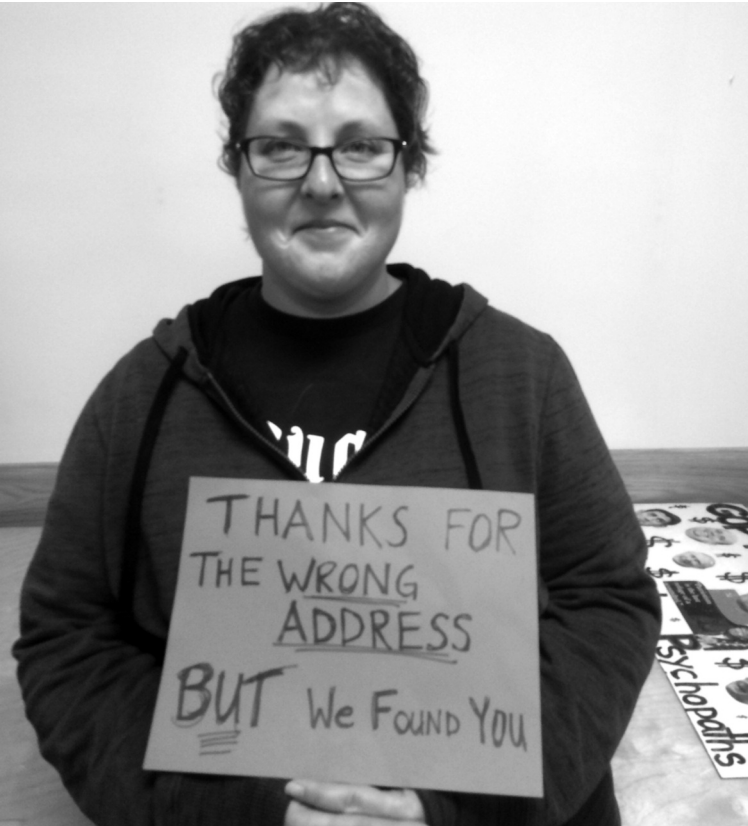 THANKS FOR
THE WRONG
ADDRESS
BUT We FOUND YOU
GOP
Psychopaths